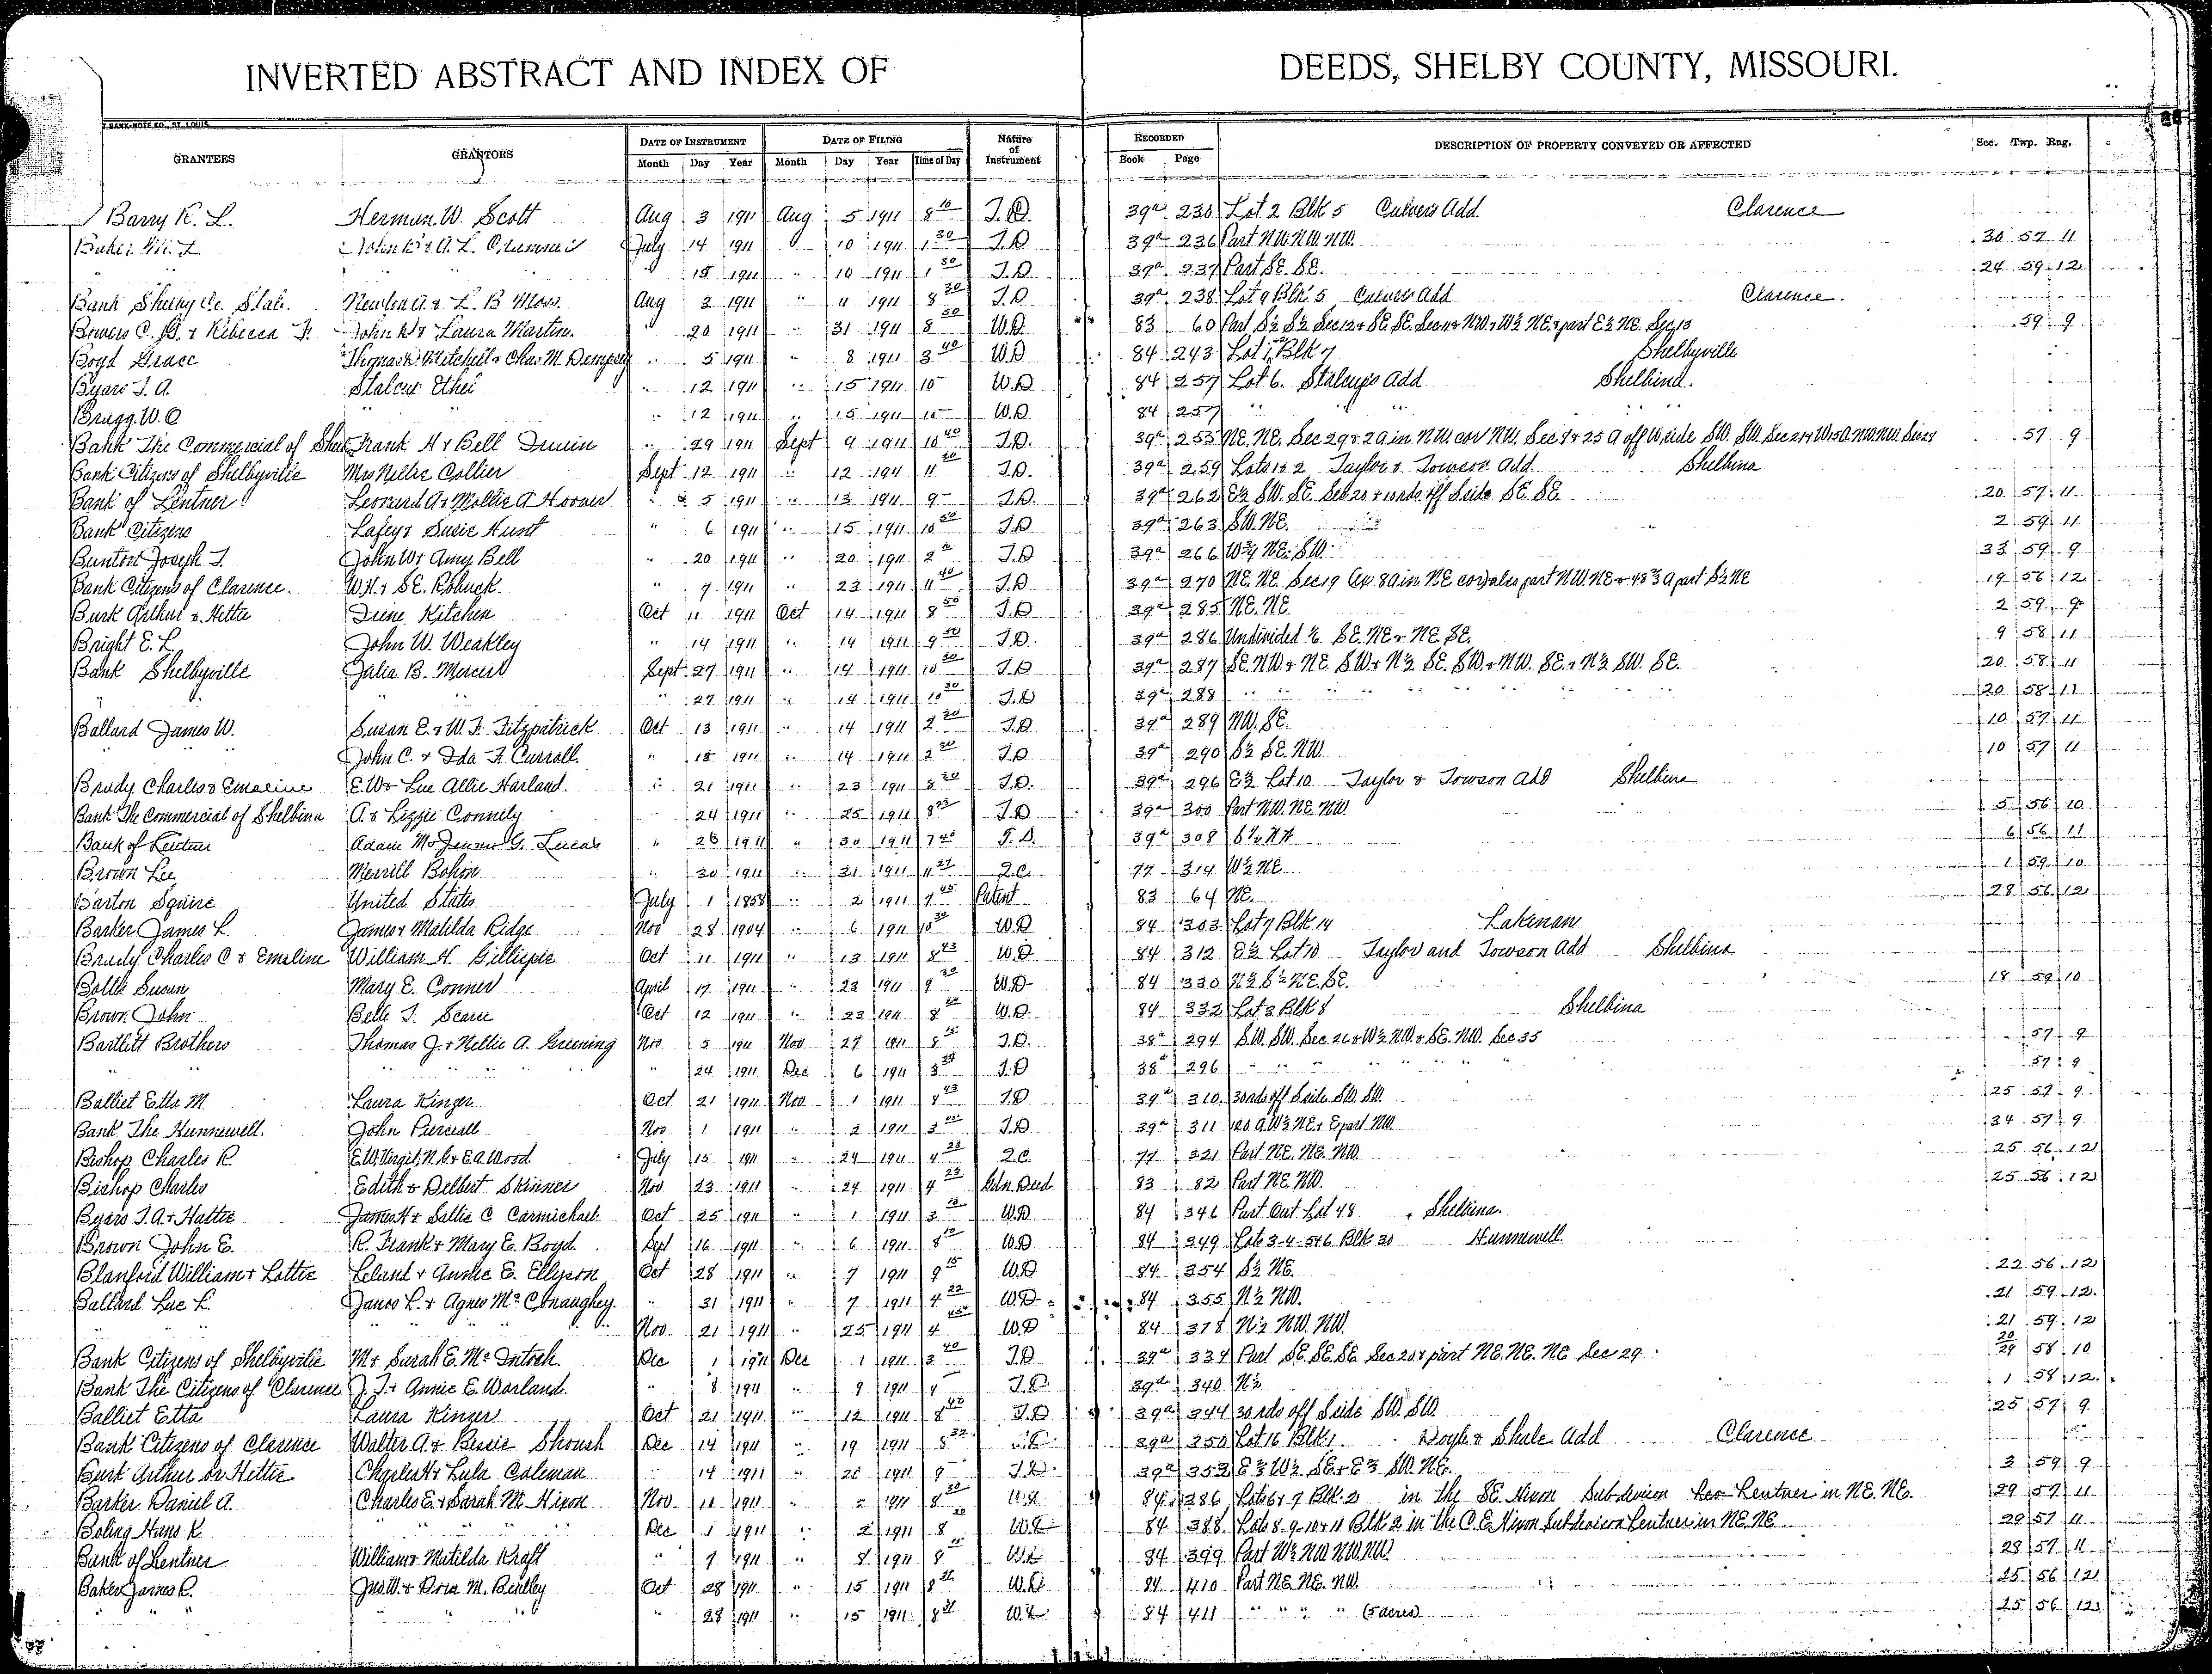 INVERTED ABSTRACT AND INDEX OF DEEDS, SHELBY COUNTY, MISSOURI.
BANK-NOTE CO., ST. LOUIS
GRANTEES GRANTORS DATE OF INSTRUMENT DATE OF FILING Nature of Instrument RECORDED DESCRIPTION OF PROPERTY CONVEYED OR AFFECTED Sec. Twp. Rng.
Month Day Year Month Day Year Time of Day Book Page
Barry K. L. Herman W. Scott Aug 3 1911 Aug 5 1911 8 10 T.D. 39a 230 Lot 2 Blk 5 Culvers Add. Clarence
Baker M. L. July 14 1911 " 10 1911 1 30 T.D. 39a 236 Part NW. NW. NW. 30 57 11
" 15 1911 " 10 1911 1 30 T.D. 39a 237 Part SE. SE. 24 59 12
Bank Shelby Co. State. Newton A. & L. B. Moss. Aug 2 1911 " 11 1911 8 30 T.D. 39a 238 Lot 9 Blk 5 Culvers Add Clarence.
Bowers C. & Rebecca F. John & Laura Martin. " 20 1911 " 31 1911 8 30 W.D. 83 60 Part S½ S½ Sec 12 & SE. SE. Sec 11 & NW & W½ NE. & part E½ NE. Sec 13 59 9
Boyd Grace Thomas Mitchell & Chas M. Dempsey " 5 1911 " 8 1911 3 40 W.D 84 243 Lot 1 Blk 7 Shelbyville
Byars T. A. Stalcup Ethel " 12 1911 " 15 1911 10 W.D 84 257 Lot 6. Stalcups Add Shelbina.
Bragg W. O " " 12 1911 " 15 1911 10 W.D 84 257 " " "
Bank The Commercial of Frank H & Bell Irwin " 29 1911 Sept 9 1911 10 40 T.D. 39a 253 NE. NE. Sec 29 & 2a in NW. cor NW. Sec & 25 a off W. side SW. SW. 57 9
Bank Citizens of Shelbyville Mrs Nellie Collier Sept 12 1911 " 12 1911 11 T.D. 39a 259 Lots 1 & 2 Taylor & Towson Add. Shelbina
Bank of Lentner Leonard A & Mollie A Hoover " 5 1911 " 13 1911 9 T.D. 39a 262 E½ SW. SE. Sec 20 & rods off S side SE. SE. 20 57 11
Bank Citizens Lafey & Susie Hunt " 6 1911 " 15 1911 10 T.D 39a 263 SW. NE. 2 59 11
Bunton Joseph T. John W & Amy Bell " 20 1911 " 20 1911 2 T.D 39a 266 W¾ NE. SW. 33 59 9
Bank Citizens of Clarence. W. H. & S.E. Rohuck. " 7 1911 " 23 1911 11 40 T.D 39a 270 NE. NE. Sec 19 (Ex 8a in NE cor) also part NW. NE & a part S½ NE 19 56 12
Burk Arthur & Hettie Irene Kitchen Oct 11 1911 Oct 14 1911 8 50 T.D 39a 285 NE. NE. 2 59 9
Bright E. L. John W. Weakley " 14 1911 " 14 1911 9 50 T.D. 39a 286 Undivided 1/6 SE. NE & NE. SE. 9 58 11
Bank Shelbyville Julia B. Sept 27 1911 " 14 1911 10 30 T.D 39a 287 SE. NW & NE. SW & N½ SE. SW. & NW. SE. & N½ SW. SE. 20 58 11
" 27 1911 " 14 1911 10 30 T.D 39a 288 " " " 20 58 11
Ballard James W. Susan E. & W. F. Fitzpatrick Oct 13 1911 " 14 1911 2 30 T.D 39a 289 NW. SE. 10 57 11
John C. & Ida F. Currall. " 18 1911 " 14 1911 2 30 T.D 39a 290 S½ SE. NW. 10 57 11
Brady Charles & Emaline E. W & Lue Allie Harland. " 21 1911 " 23 1911 8 20 T.D. 39a 296 E½ Lot 10 Taylor & Towson Add Shelbina
Bank The Commercial of Shelbina A. & Lizzie Connely " 24 1911 " 25 1911 8 T.D 39a 300 Part NW. NE. NW. 5 56 10
Bank of Lentner Adam M & Jennie G. Lucas " 28 1911 " 30 1911 7 40 T.D. 39a 308 6 56 11
Brown Lee Merrill Bohon " 30 1911 " 31 1911 11 Q.C. 77 314 W½ NE. 1 59 10
Barton Squire United States July 1 1858 " 2 1911 9 45 Patent 83 64 NE. 28 56 12
Barker James L. James & Matilda Ridge Nov 28 1904 " 6 1911 10 30 W.D 84 303 Lot 7 Blk 14 Lakenan
Brady Charles C & Emaline William H. Gillispie Oct 11 1911 " 13 1911 8 43 W.D. 84 312 E½ Lot 10 Taylor and Towson Add Shelbina
Susan Mary E. Conner April 17 1911 " 23 1911 9 W.D 84 330 N½ S½ NE. SE. 18 59 10
Brown John Belle T. Oct 12 1911 " 23 1911 8 W.D. 84 332 Lot 3 Blk 8 Shelbina
Bartlett Brothers Thomas J. & Nellie A. Greening Nov 5 1911 Nov 27 1911 8 T.D. 38a 294 SW. SW. Sec 26 & W½ NW. & SE. NW. Sec 35 57 9
" " " 24 1911 Dec 6 1911 3 T.D 38a 296 " " " 57 9
Balliet Etta M. Laura Kinzer Oct 21 1911 Nov 1 1911 T.D 39a 310 30 rds off S side SW. SW. 25 57 9
Bank The Hunnewell. John Nov 1 1911 " 2 1911 3 T.D. 39a 311 120 a. W½ NE. & E part NW. 34 57 9
Bishop Charles R. E.W. Virgil, N.C. & E.A. Wood. July 15 1911 " 24 1911 4 Q.C. 77 321 Part NE. NE. NW. 25 56 12
Bishop Charles Edith & Delbert Skinner Nov 23 1911 " 24 1911 4 Deed 83 82 Part NE. NW. 25 56 12
Byars T. A. & Hattie James H & Sallie C Carmichael Oct 25 1911 " 1 1911 3 W.D 84 346 Part Out Lot 48 Shelbina.
Brown John E. R. Frank & Mary E. Boyd. Sept 16 1911 " 6 1911 8 W.D 84 349 Lots 3-4-5 & 6 Blk 30 Hunnewell
Blanford William & Lottie Leland & Annie E. Ellyson Oct 28 1911 " 7 1911 9 15 W.D 84 354 S½ NE. 22 56 12
Ballard Lue L. James L. & Agnes McConaughey. " 31 1911 " 7 1911 4 W.D. 84 355 N½ NW. 21 59 12
" " Nov. 21 1911 " 25 1911 4 W.D 84 378 N½ NW. NW. 21 59 12
Bank Citizens of Shelbyville M & Sarah E. McIntosh. Dec 1 1911 Dec 1 1911 3 40 T.D 39a 334 Part SE. SE. SE Sec 20 & part NE. NE. NE Sec 29. 20 29 58 10
Bank The Citizens of Clarence J. T. & Annie E. Worland. " 8 1911 " 9 1911 4 T.D. 39a 340 N½ 1 58 12
Balliet Etta Laura Kinzer Oct 21 1911 " 12 1911 8 T.D 39a 344 30 rds off S side SW. SW. 25 57 9
Bank Citizens of Clarence Walter A. & Bessie Dec 14 1911 " 19 1911 8 39a 350 Lot 16 Blk 1 Doyle & Shale Add Clarence
Burk Arthur or Hettie Charles H & Lula Coleman " 14 1911 " 1911 9 T.D. 39a 353 SE. & SW. NE. 3 59 9
Barker Daniel A. Charles E. & Sarah M. Hixon Nov. 11 1911 " 2 1911 8 30 84 386 Lots 6 & 7 Blk. 2 in the Hixon Subdivision Lentner in NE. NE. 29 57 11
Boling Hans K. " " " Dec 1 1911 " 2 1911 8 84 388 Lots 8-9-10 & 11 Blk 2 in the C. E. Hixon Subdivision Lentner in NE. NE 29 57 11
Bank of Lentner William & Matilda Kraft " 7 1911 " 8 1911 8 84 399 Part W½ NW. NW. NW. 28 57 11
Baker James R. Jno W. & Dora M. Bentley Oct 28 1911 " 15 1911 8 W.D. 84 410 Part NE. NE. NW. 25 56 12
" " " " " 28 1911 " 15 1911 8 84 411 " " " " (5 acres) 25 56 12